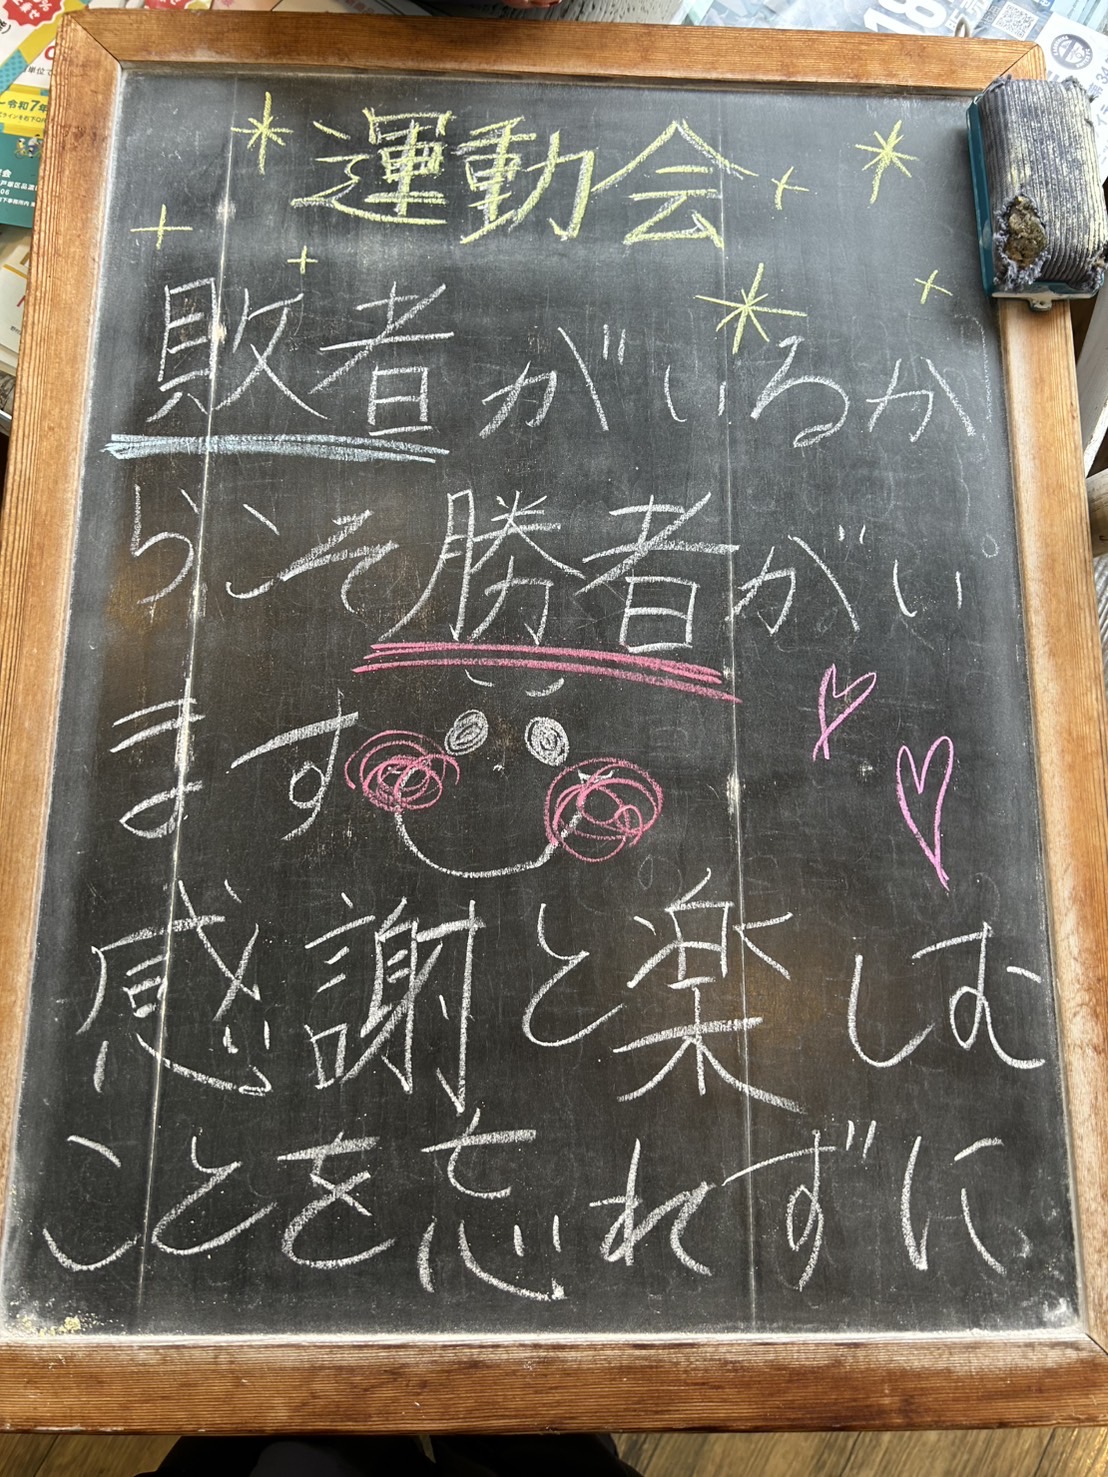 運動会
敗者がいるか
らこそ勝者がい
ます
感謝と楽しむ
ことを忘れずに
令和7年
18